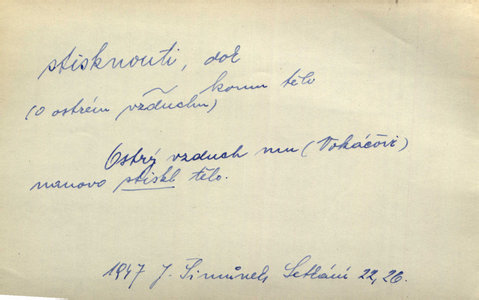 stisknouti, dok
komu tělo
(o ostrém vzduchu)
Ostrý vzduch mu (Vokáčovi)
nanovo stiskl tělo.
1947 J. Šimůnek, Setkání 22, 26.